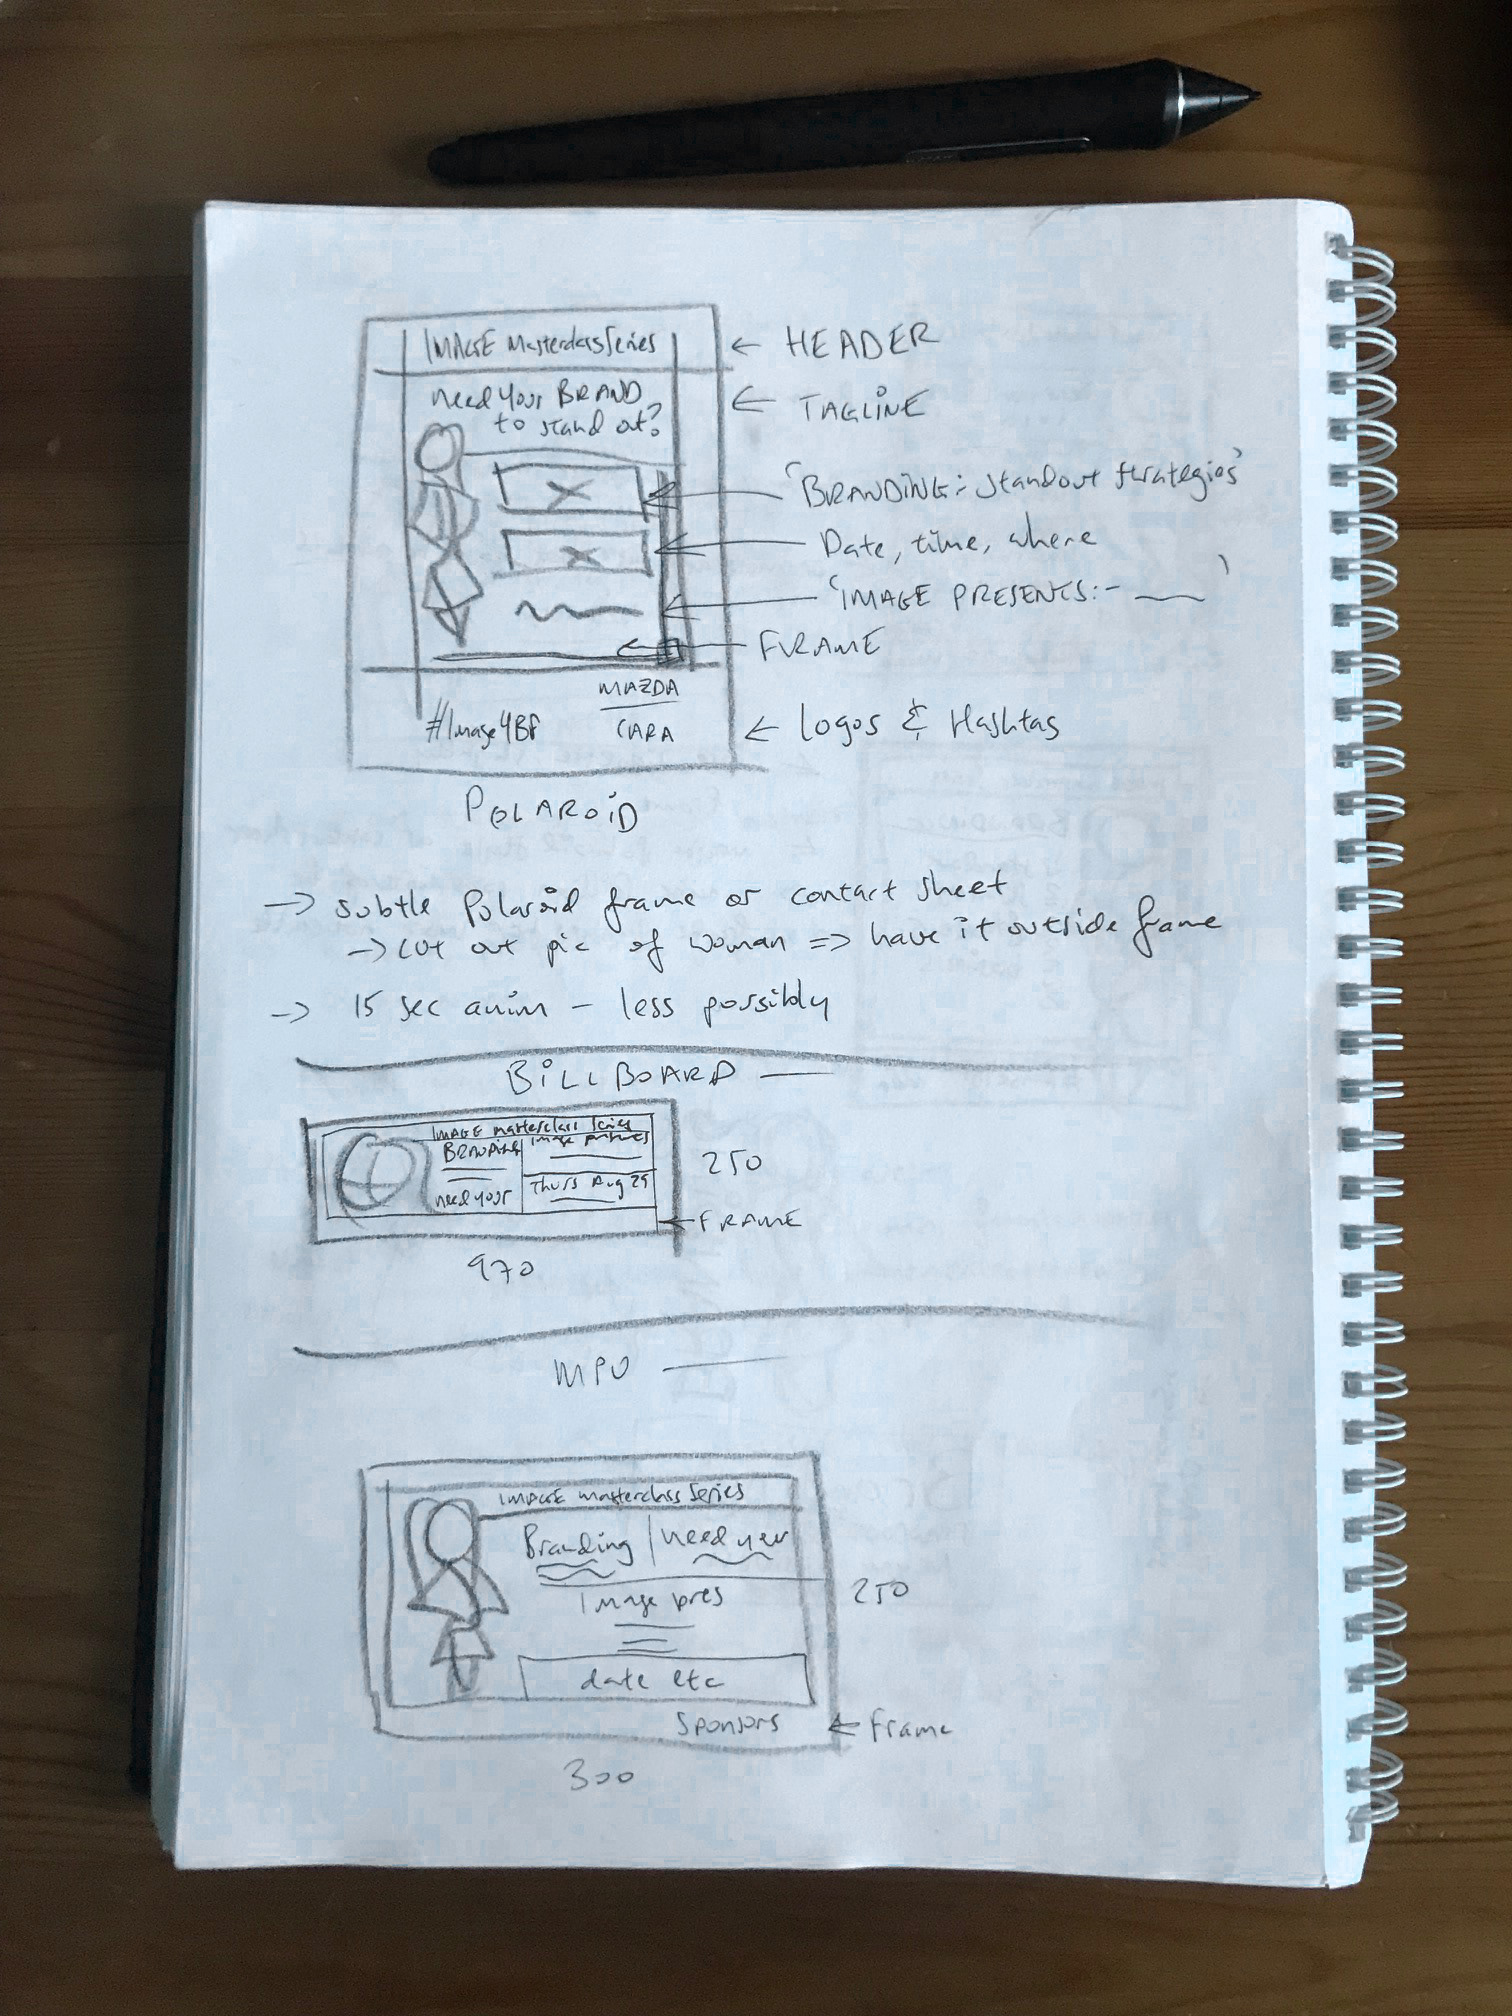 IMAGE MasterclassSeries
← HEADER
need your BRAND
to stand out?
← TAGLINE
'BRANDING: Standout Strategies'
Date, time, where
'IMAGE PRESENTS:- ___'
FRAME
MAZDA
CARA
#Image4BF
← Logos & Hashtas
POLAROID
→ subtle Polaroid frame or contact sheet
→ cut out pic of woman => have it outside frame
→ 15 sec anim - less possibly
BILLBOARD —
IMAGE masterclass Series
BRANDING
Image presents
need your
Thurs Aug 29
250
← FRAME
970
MPU —
IMAGE masterclass Series
Branding
need your
Image pres
250
date etc
Sponsors
← Frame
300